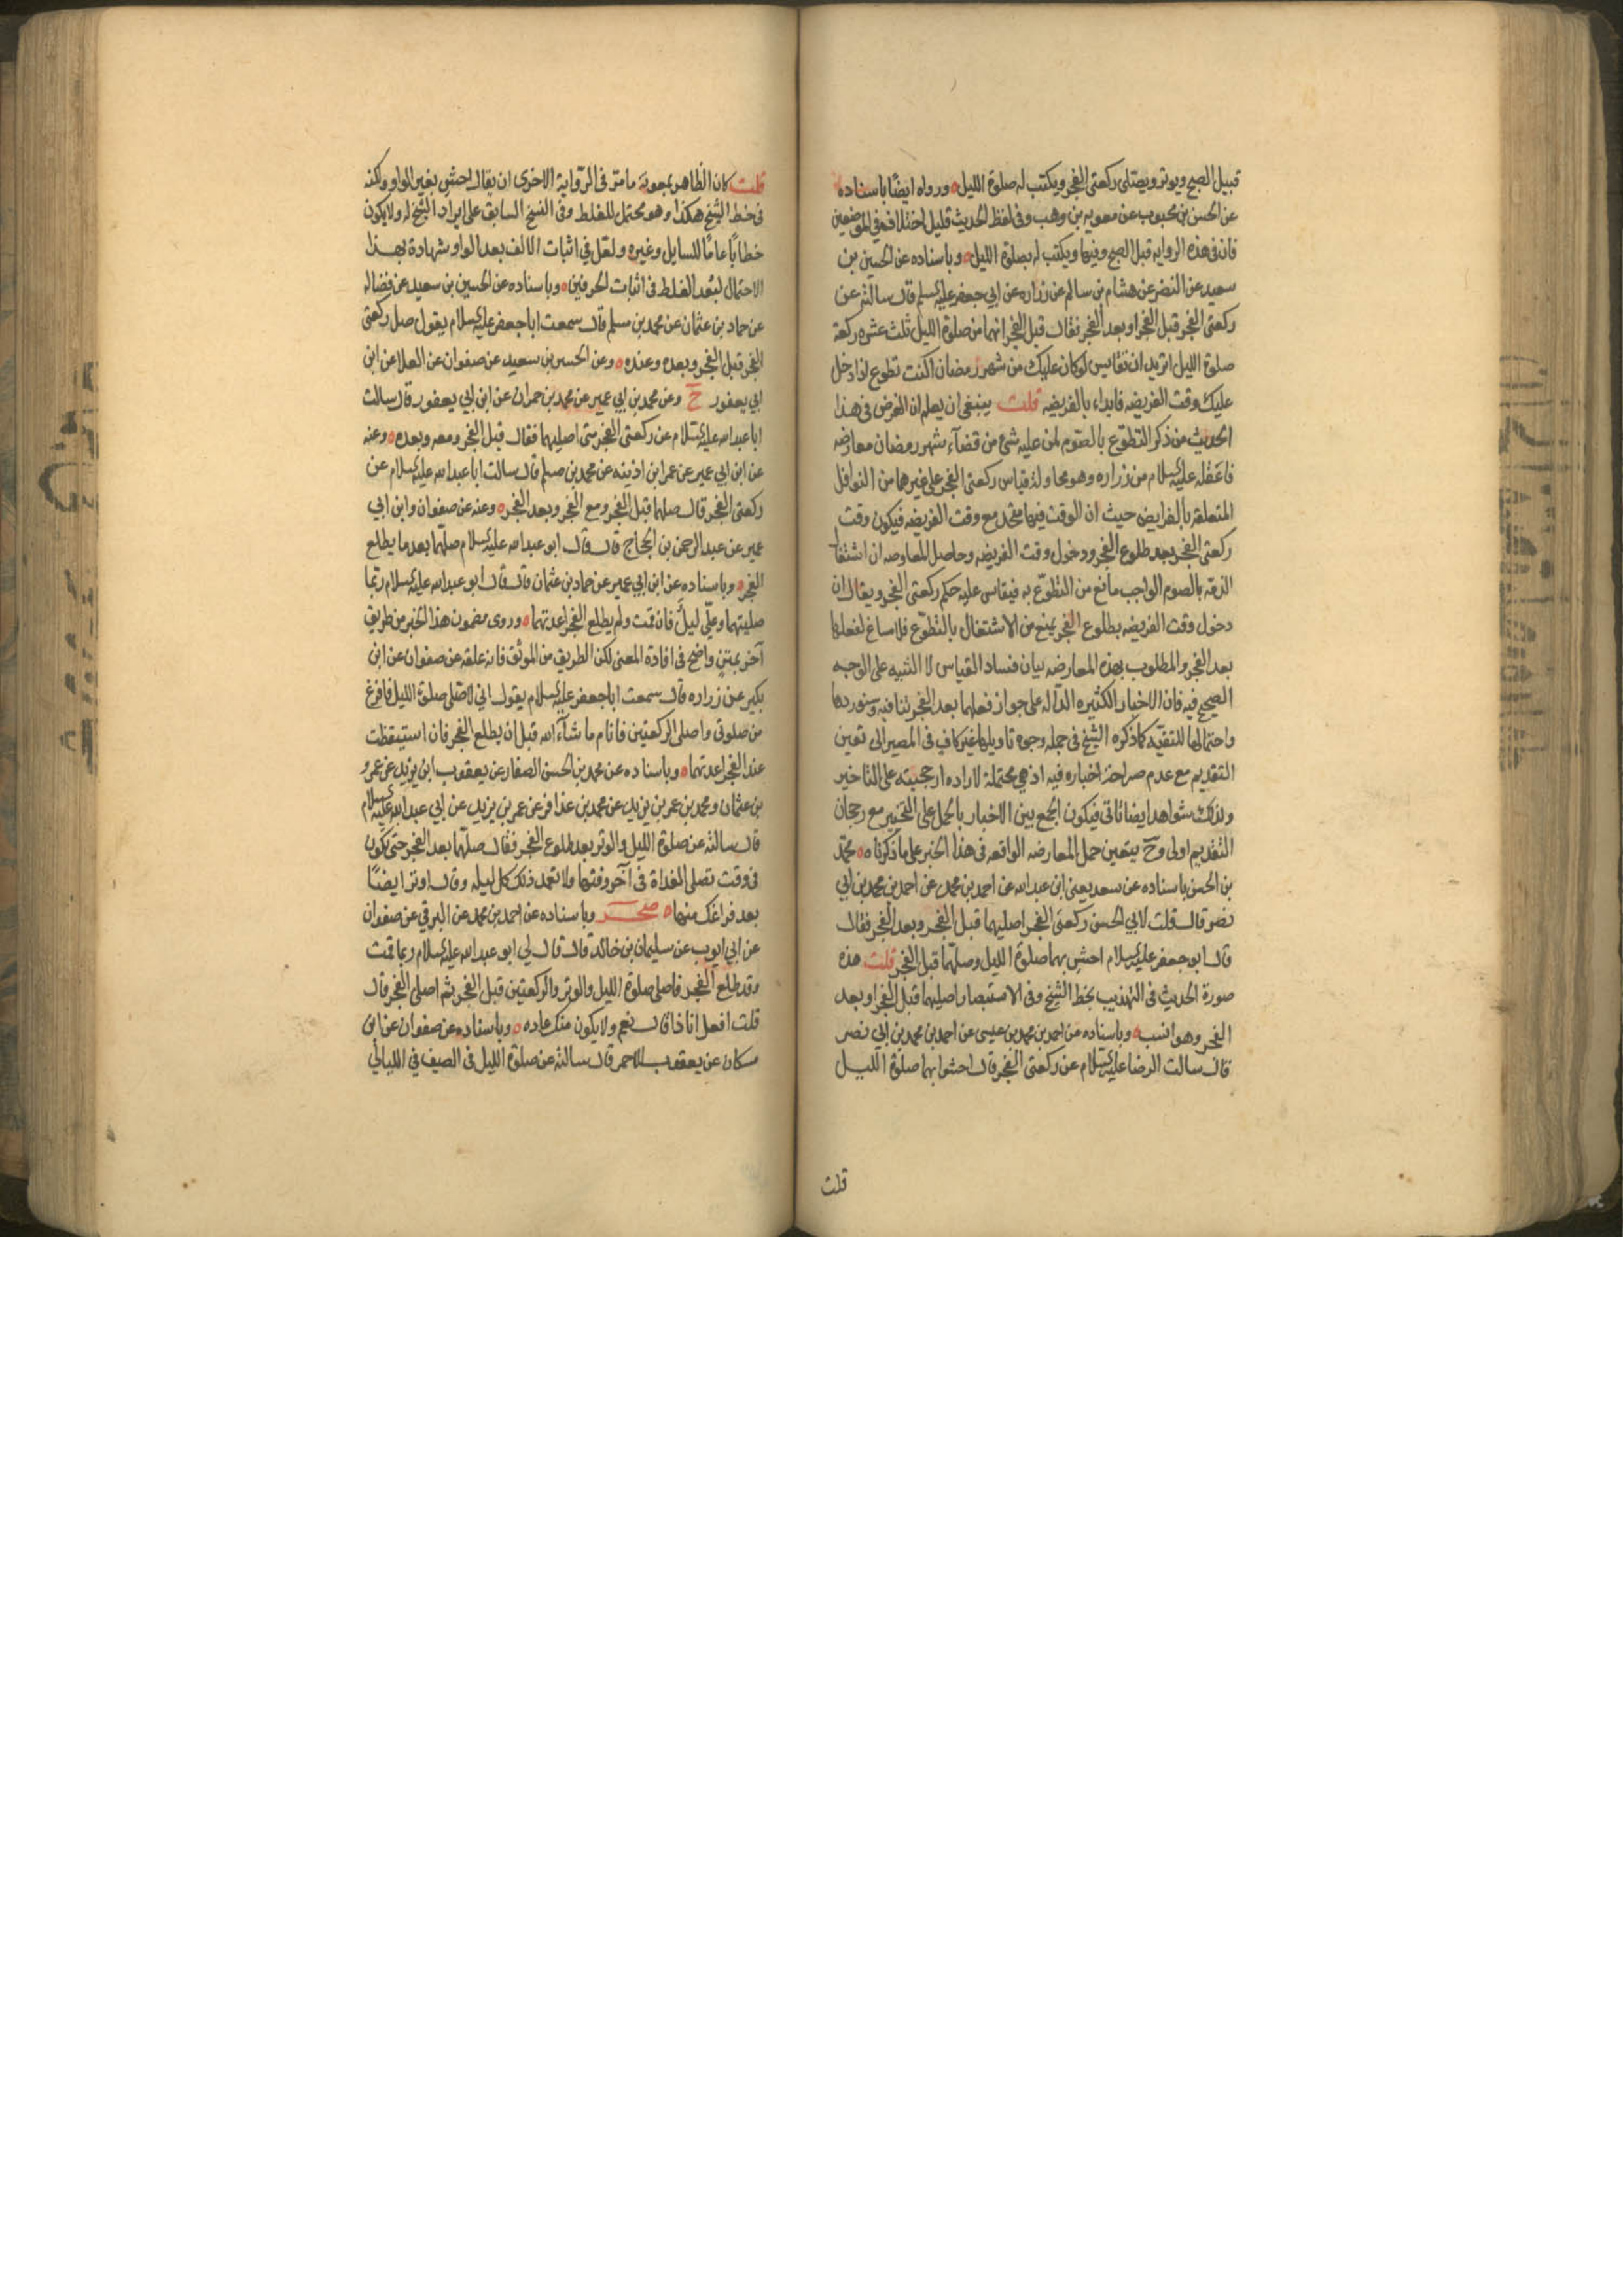 قبيل الصبح ويوتر ويصلى ركعتى الفجر ويكتب له صلوة الليل ه ورواه ايضا باسناده
عن الحسن بن محبوب عن معويه بن وهب وفى لفظ الحديث قليل اختلاف فى الموضعين
فان فى هذه الروايه قبل الصبح وفيها ويكتب له بصلوة الليل ه وباسناده عن الحسين بن
سعيد عن النضر عن هشام بن سالم عن زراره عن ابى جعفر عليه السلم قال سالته عن
ركعتى الفجر قبل الفجر او بعد الفجر فقال قبل الفجر انهما من صلوة الليل ثلث عشره ركعة
صلوة الليل اتريد ان تقايس لو كان عليك من شهر رمضان اكنت تطوع اذا دخل
عليك وقت الفريضه فابداء بالفريضه قلت ينبغى ان يعلم ان الغرض فى هذا
الحديث من ذكر التطوع بالصوم لمن عليه شئ من قضآء شهر رمضان معارضه
ما عقله عليه السلام من زراره وهو محاولة قياس ركعتى الفجر على غيرهما من النوافل
المتعلقه بالفرايض حيث ان الوقت فيها متحد مع وقت الفريضه فيكون وقت
ركعتى الفجر بعد طلوع الفجر ودخول وقت الفريضه وحاصل المعاوضه ان اشتغال
الذمه بالصوم الواجب مانع من التطوع به فيقاس عليه حكم ركعتى الفجر ويقال ان
دخول وقت الفريضه بطلوع الفجر يمنع من الاشتغال بالتطوع فلا مساغ لفعلها
بعد الفجر والمطلوب بهذه المعارضه بيان فساد القياس لا التنبيه على الوجه
الصحيح فيه فان الاخبار الكثيره الدآله على جواز فعلهما بعد الفجر تنافيه وسنوردها
واحتمالها للتقيه كما ذكره الشيخ فى جمله وجوه تاويلها غير كاف فى المصير الى تعين
التقديم مع عدم صراحة اخباره فيه اذ هى محتملة لاراده ارجحيته على التاخير
ولذلك شواهد ايضا تاتى فيكون الجمع بين الاخبار بالحمل على التخيير مع رجحان
التقديم اولى وح يتعين حمل المعارضه الواقعه فى هذا الخبر على ما ذكرناه ه محمد
بن الحسن باسناده عن سعد يعنى ابن عبد الله عن احمد بن محمد عن احمد بن محمد بن ابي
نصر قال قلت لابي الحسن ركعتى الفجر اصليهما قبل الفجر وبعد الفجر فقال
قال ابو جعفر عليه السلام احش بهما صلوة الليل وصلهما قبل الفجر قلت هذه
صورة الحديث فى التهذيب بخط الشيخ وفى الاستبصار اصليهما قبل الفجر او بعد
الفجر وهو انسب ه وباسناده عن احمد بن محمد بن عيسى عن احمد بن محمد بن ابي نصر
قال سالت الرضا عليه السلام عن ركعتى الفجر قال احشوا بهما صلوة الليل
قلت
قلت كان الظاهر بمعونة ما مر فى الرواية الاخرى ان يقال احش بغير الواو ولكنه
فى خط الشيخ هكذا وهو محتمل للغلط وفى النسخ السابق على ايراد الشيخ له ولا يكون
خطابا عاما للسايل وغيره ولعل فى اثبات الالف بعد الواو شهادة بهذا
الاحتمال لبعد الغلط فى اثبات الحرفين ه وباسناده عن الحسين بن سعيد عن فضاله
عن حماد بن عثمان عن محمد بن مسلم قال سمعت ابا جعفر عليه السلام يقول صل ركعتى
الفجر قبل الفجر وبعده وعنده ه وعن الحسين بن سعيد عن صفوان عن العلا عن ابن
ابي يعفور ح وعن محمد بن ابي عمير عن محمد بن حمران عن ابن ابي يعفور قال سالت
ابا عبد الله عليه السلام عن ركعتى الفجر متى اصليهما فقال قبل الفجر ومعه وبعده ه وعنه
عن ابن ابي عمير عن عمر ابن اذينه عن محمد بن مسلم قال سالت ابا عبد الله عليه السلام عن
ركعتى الفجر قال صلهما قبل الفجر ومع الفجر وبعد الفجر ه وعنه عن صفوان وابن ابي
عمير عن عبد الرحمن بن الحجاج قال قال ابو عبد الله عليه السلام صلهما بعد ما يطلع
الفجر ه وباسناده عن ابن ابي عمير عن حماد بن عثمان قال قال ابو عبد الله عليه السلام ربما
صليتهما وعلى ليل فان قمت ولم يطلع الفجر اعدتهما ه وروى مضمون هذا الخبر من طريق
آخر بمتن واضح فى افادة المعنى لكن الطريق من الموثق فانه علقه عن صفوان عن ابن
بكير عن زراره قال سمعت ابا جعفر عليه السلام يقول اني لاصلى صلوة الليل فافرغ
من صلوتى واصلى الركعتين فانام ما شآء الله قبل ان يطلع الفجر فان استيقظت
عند الفجر اعدتهما ه وباسناده عن محمد بن الحسن الصفار عن يعقوب ابن يزيد عن عمرو
بن عثمان ومحمد بن عمر بن يزيد عن محمد بن عذافر عن عمر بن يزيد عن ابي عبد الله عليه السلام
قال سالته عن صلوة الليل والوتر بعد طلوع الفجر فقال صلها بعد الفجر حتى تكون
فى وقت تصلى الغداة فى آخر وقتها ولا تعمد ذلك كل ليله وقال اوتر ايضا
بعد فراغك منها ه صحر وباسناده عن احمد بن محمد عن البرقي عن صفوان
عن ابي ايوب عن سليمان بن خالد قال قال لي ابو عبد الله عليه السلام ربما قمت
وقد طلع الفجر فاصلى صلوة الليل والوتر والركعتين قبل الفجر ثم اصلى الفجر قال
قلت افعل انا ذا قال نعم ولا يكون منك عاده ه وباسناده عن صفوان عن ابن
مسكان عن يعقوب الاحمر قال سالته عن صلوة الليل فى الصيف في الليالي